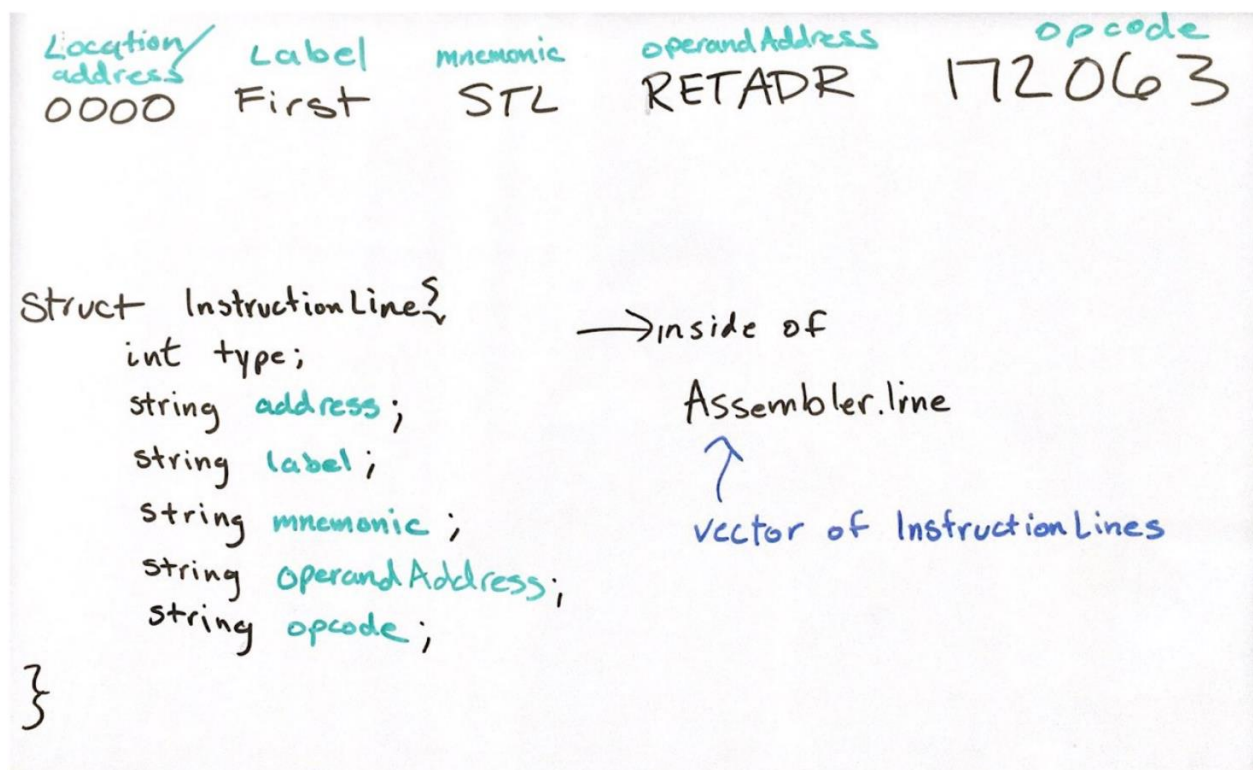 Location/ Label mnemonic operandAddress opcode
address
0000 First STL RETADR 172063
Struct InstructionLine{
int type;
string address;
string label;
string mnemonic;
string operandAddress;
string opcode;
}
→inside of
Assembler.line
vector of InstructionLines